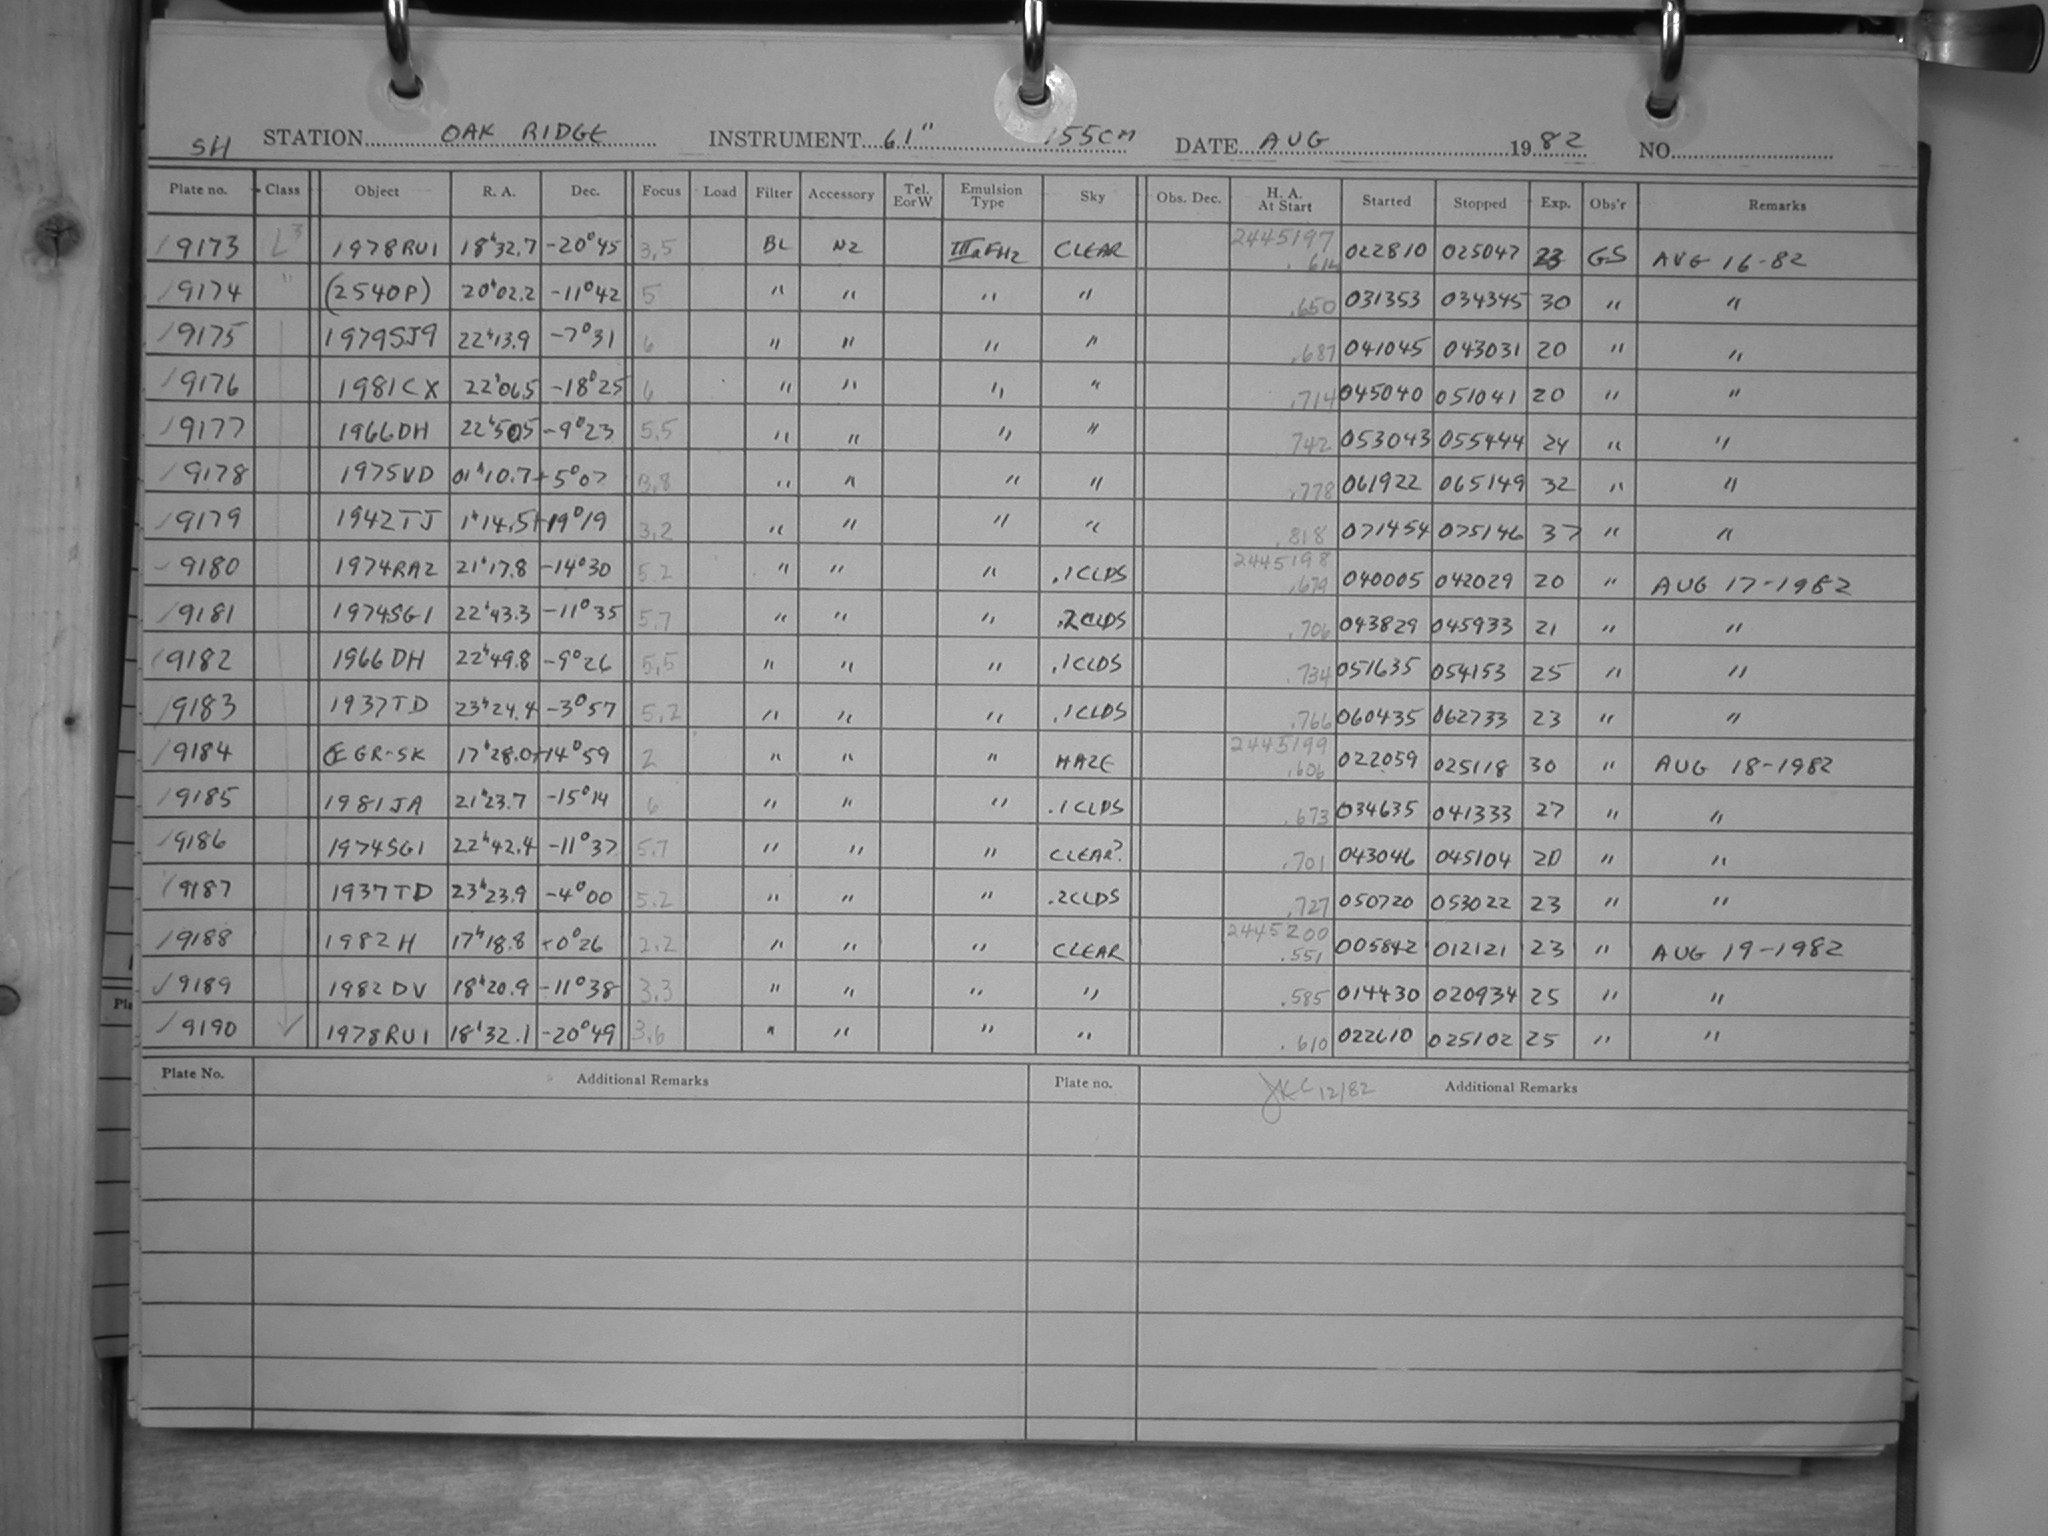 SH STATION OAK RIDGE INSTRUMENT 61" 155CM DATE AUG 1982 NO.
Plate no. Class Object R. A. Dec. Focus Load Filter Accessory Tel. EorW Emulsion Type Sky Obs. Dec. H. A. At Start Started Stopped Exp. Obs'r Remarks
9173 L3 1978RU1 18h32.7 -20°45 3.5 BL N2 IIIaFH2 CLEAR 2445197 022810 025047 23 GS AUG 16-82
9174 " (2540P) 20h02.2 -11°42 5 " " " " .650 031353 034345 30 " "
9175 1979SJ9 22h13.9 -7°31 6 " " " " .687 041045 043031 20 " "
9176 1981CX 22h06.5 -18°25 6 " " " " .714 045040 051041 20 " "
9177 1966DH 22h50.5 -9°23 5.5 " " " " .742 053043 055444 24 " "
9178 1975VD 01h10.7 +5°07 3.8 " " " " .778 061922 065149 32 " "
9179 1942TJ 1h14.5 +19°19 3.2 " " " " .818 071454 075146 37 " "
9180 1974RA2 21h17.8 -14°30 5.2 " " " .1CLDS 2445198 .679 040005 042029 20 " AUG 17-1982
9181 1974SG1 22h43.3 -11°35 5.7 " " " .2CLDS .706 043829 045933 21 " "
9182 1966DH 22h49.8 -9°26 5.5 " " " .1CLDS .734 051635 054153 25 " "
9183 1937TD 23h24.4 -3°57 5.2 " " " .1CLDS .766 060435 062733 23 " "
9184 GR-SK 17h28.0 +14°59 2 " " " HAZE 2445199 .606 022059 025118 30 " AUG 18-1982
9185 1981JA 21h23.7 -15°14 6 " " " .1CLDS .673 034635 041333 27 " "
9186 1974SG1 22h42.4 -11°37 5.7 " " " CLEAR? .701 043046 045104 20 " "
9187 1937TD 23h23.9 -4°00 5.2 " " " .2CLDS .727 050720 053022 23 " "
9188 1982H 17h18.8 +0°26 2.2 " " " CLEAR 2445200 .551 005842 012121 23 " AUG 19-1982
9189 1982DV 18h20.9 -11°38 3.3 " " " " .585 014430 020934 25 " "
9190 1978RU1 18h32.1 -20°49 3.6 " " " " .610 022610 025102 25 " "
Plate No. Additional Remarks Plate no. JKC 12/82 Additional Remarks